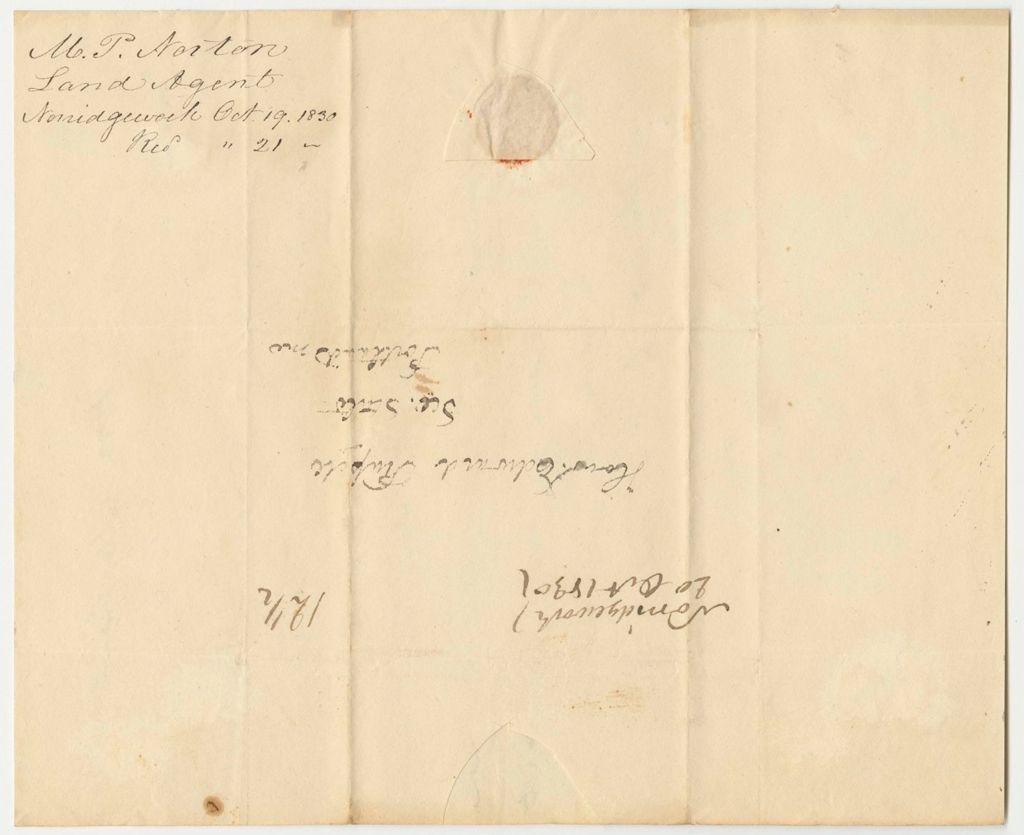 M. P. Norton
Land Agent
Norridgewock Oct 19. 1830
Recd " 21 "
Norridgewock
20 Oct 1830
12 1/2
Hon. Edward Russell
Sec. State
Portland Me